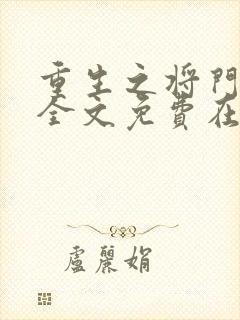 重生之将門
全文免費在
盧麗娟